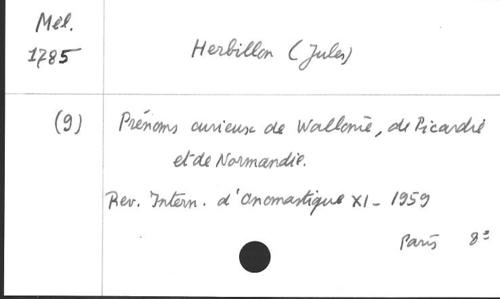 Mél.
1785
Herbillon (Jules)
(9) Prénoms curieux de Wallonie, de Picardie
et de Normandie.
Rev. Intern. d'Onomastique XI - 1959
Paris 8º